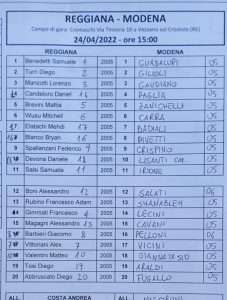 REGGIANA - MODENA
Campo di gara: Cronisacchi Via Tintoria 18 a Vezzano sul Crostolo (RE)
24/04/2022 - ore 15:00
REGGIANA MODENA
1 Benedetti Samuele 1 2005 1 GUADALUPI 05
2 Turri Diego 2 2005 2 GILIOLI 05
3 Manicotti Lorenzo 3 2005 3 GAUDIANO 05
4 Candeloro Daniel 2005 4 PAGLIA 05
5 Brevini Mattia 5 2005 5 ZANICHELLI 05
6 Wusu Mitchell 6 2005 6 CARRA 05
17 Elatachi Mehdi 2005 7 BADIALI 05
Bianco Bryan 2005 8 DIVETTI 05
9 Spallanzani Federico 9 2005 9 CRISPINO 05
Devona Daniele 2005 10 05
11 Salsi Samuele 11 2005 11 05
12 Boni Alessandro 12 2005 12 SALATI 06
13 Rubino Francesco Adam 2005 13 05
Giannitali Francesco 4 2005 14 LECINI 05
15 Magagni Alessandro 2005 15 CAVANI 05
Barbieri Giacomo 8 2005 16 PELLONI 06
Vittoriani Alex 7 2005 17 VICINI 05
Valentini Matteo 10 2005 18 05
19 Tosi Diego 19 2005 19 ARALDI 05
20 Abbruscato Diego 20 2005 20 FUSILLO 05
ALL. COSTA ANDREA ALL.